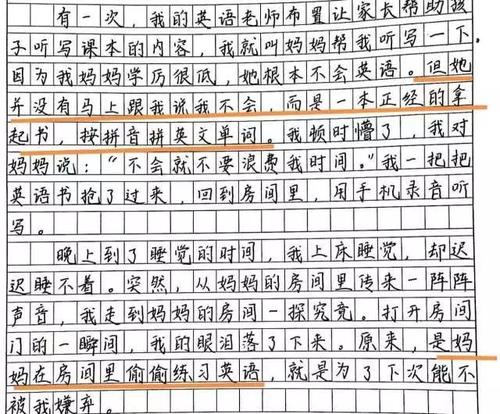 有一次，我的英语老师布置让家长帮助孩
子听写课本的内容，我就叫妈妈帮我听写一下。
因为我妈妈学历很低，她根本不会英语。但她
并没有马上跟我说我不会，而是一本正经的拿
起书，按拼音拼英文单词。我顿时懵了，我对
妈妈说：“不会就不要浪费我时间。”我一把把
英语书抢了过来，回到房间里，用手机录音听
写。
晚上到了睡觉的时间，我上床睡觉，却迟
迟睡不着。突然，从妈妈的房间里传来一阵阵
声音，我走到妈妈的房间一探究竟。打开房间
门的一瞬间，我的眼泪落了下来。原来，是妈
妈在房间里偷偷练习英语，就是为了下次能不
被我嫌弃。